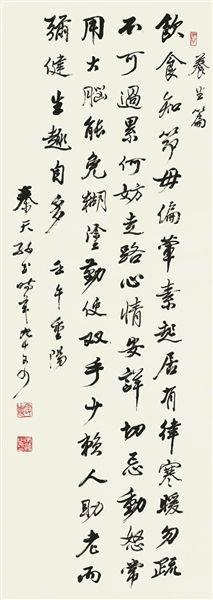 養生篇
飲食知節毋偏葷素起居有律寒暖勿疏
不可過累何妨走路心情安詳切忌動怒常
用大腦能免糊塗勤使双手少賴人助老而
彌健生趣自多 壬午重陽
秦天 书时年九十又